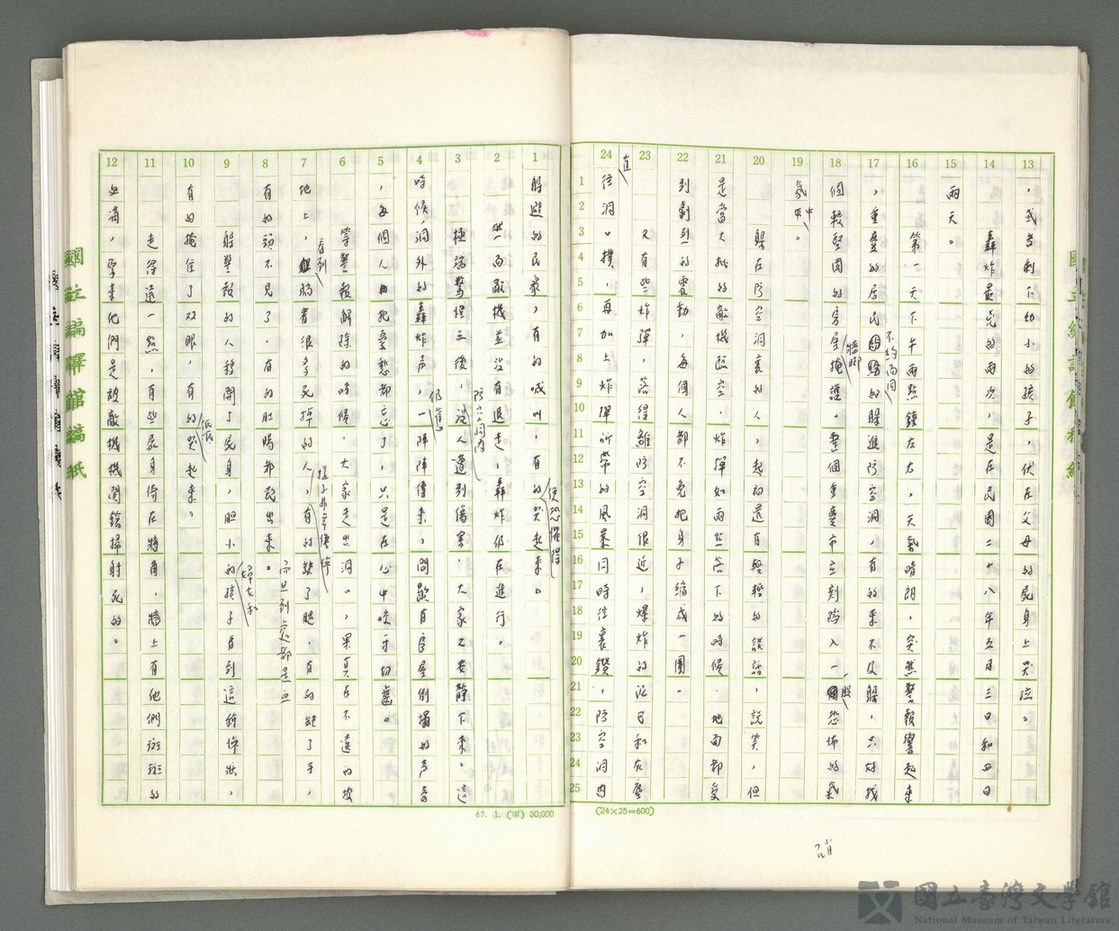 ，或者剩下幼小的孩子，伏在父母的屍身上哭泣。
轟炸最兇的兩次，是在民國二十八年五月三日和四日
兩天。
第一天下午兩點鐘左右，天氣晴朗，突然警報響起來
，重慶的居民不約而同的躲進防空洞，有的來不及躲，只好找
個較堅固的房屋牆腳掩護。整個重慶市立刻陷入一股恐怖的氣
氛中。
躲在防空洞裏的人，起初還有輕輕的談話，說笑，但
是當大批的敵機臨空，炸彈如雨點落下的時候，地面都受
到劇烈的震動，每個人都不免把身子縮成一團。
又有些炸彈，落得離防空洞很近，爆炸的泥石和灰塵
直往洞口撲，再加上炸彈所帶的風暴同時往裏鑽，防空洞內
躲避的民眾，有的喊叫，有的便恐懼得哭起來。
然而敵機並沒有退走，轟炸仍在進行。
極端驚惶三後，防空洞內沒人遭到傷害，大家又安靜下來。這
時候，洞外的轟炸声，仍舊一陣陣傳來，間歇有房屋倒塌的声音
，每個人把憂愁都忘了，只是在心中咬牙切齒。
等警報解除的時候，大家走出洞口，果真在不遠的坡
地上，看到躺着很多死掉的人，樣子非常悽慘，有的缺了腿，有的缺了手，
有的頭不見了，有的肚腸都跑出來。而且到處都是血
躲警報的人移開了屍身，胆小的婦女和孩子看到這種慘狀，
有的掩住了双眼，有的低低哭起來。
走得遠一點，有些屍身倚在牆角，牆上有他們斑斑的
血漬，原來他們是被敵機機關鎗掃射死的。
國立編譯館稿紙
67. 1. (川) 30,000
(24×25=600)
國立臺灣文學館
National Museum of Taiwan Literature